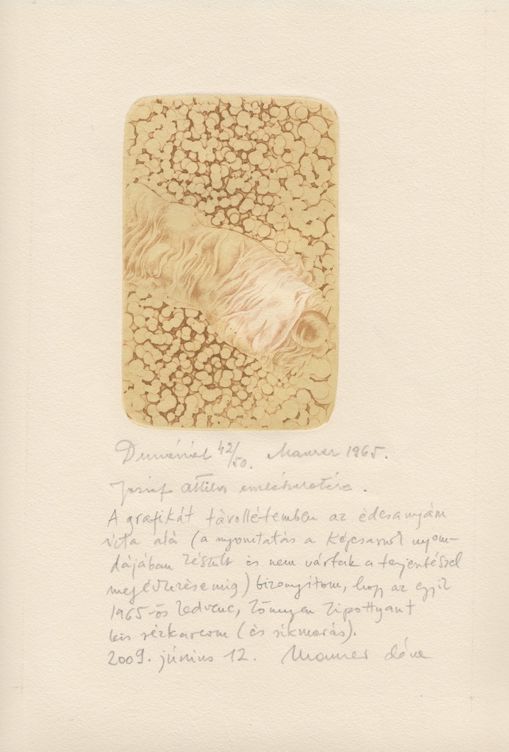 Dunánál 42/50. Maurer 1965.
József Attila emlékezetére.
A grafikát távollétemben az édesanyám
írta alá (a nyomtatás a Kópcsarnok nyom-
dájában készült és nem vártak a terjesztéssel
megérkezésemig) bizonyítom, hogy az egyik
1965-ös kedvenc, könnyen
kis rézkarcom (és síkmarás).
2009. június 12. Maurer Dóra